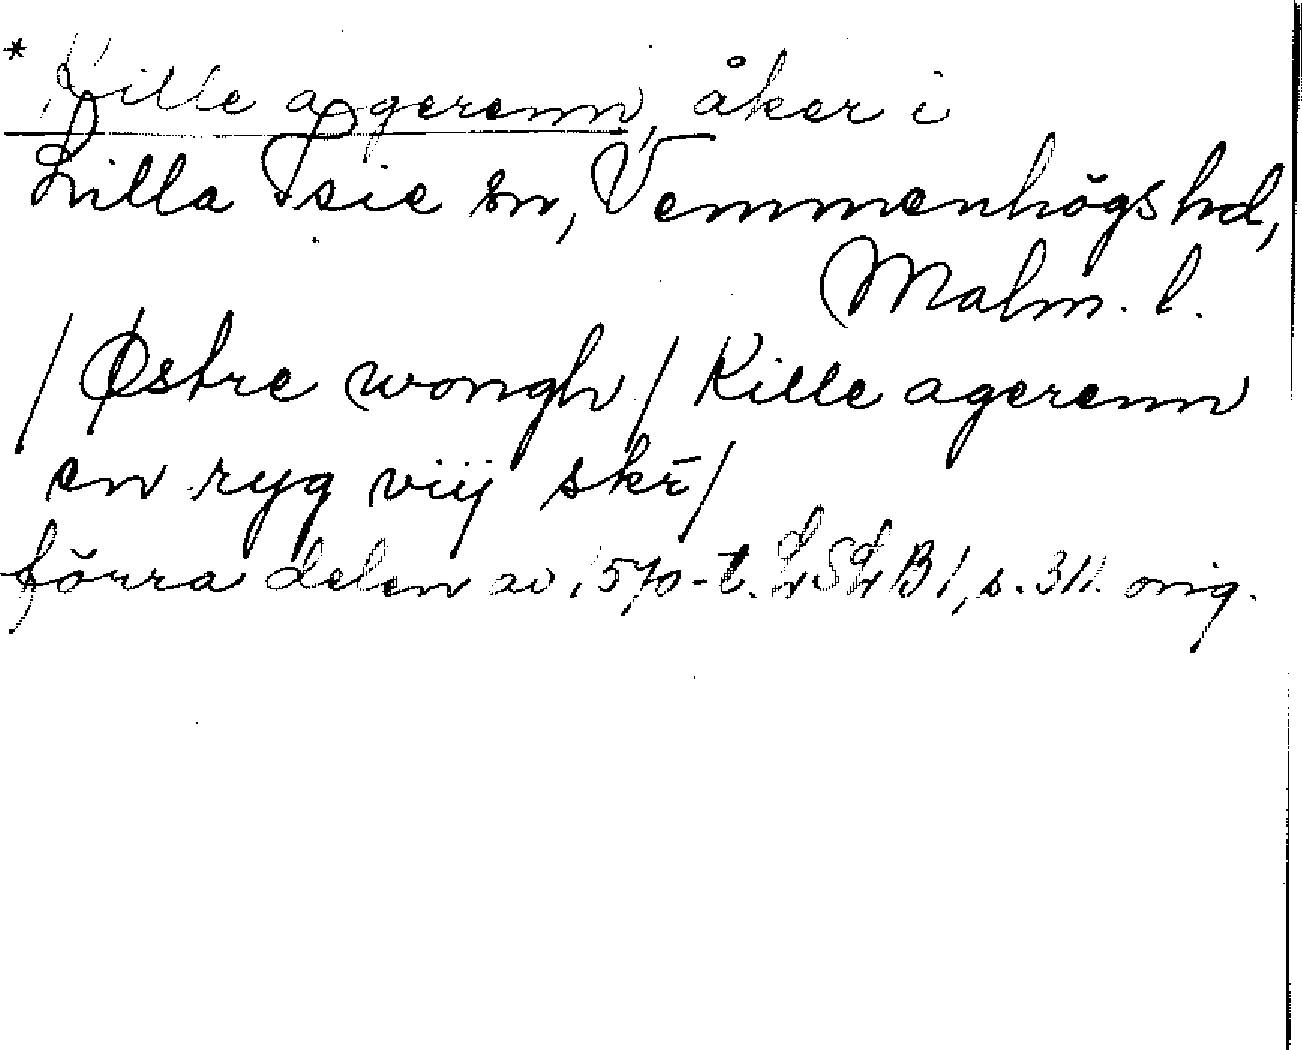 * Kille agerenn, åker i
Lilla Isie sn, Vemmenhögs hd,
Malm. l.
/ Østre wongh / Kille agerenn
en ryg viij skē /
förra delen av 1570-t. LSLB 1, s. 311. orig.